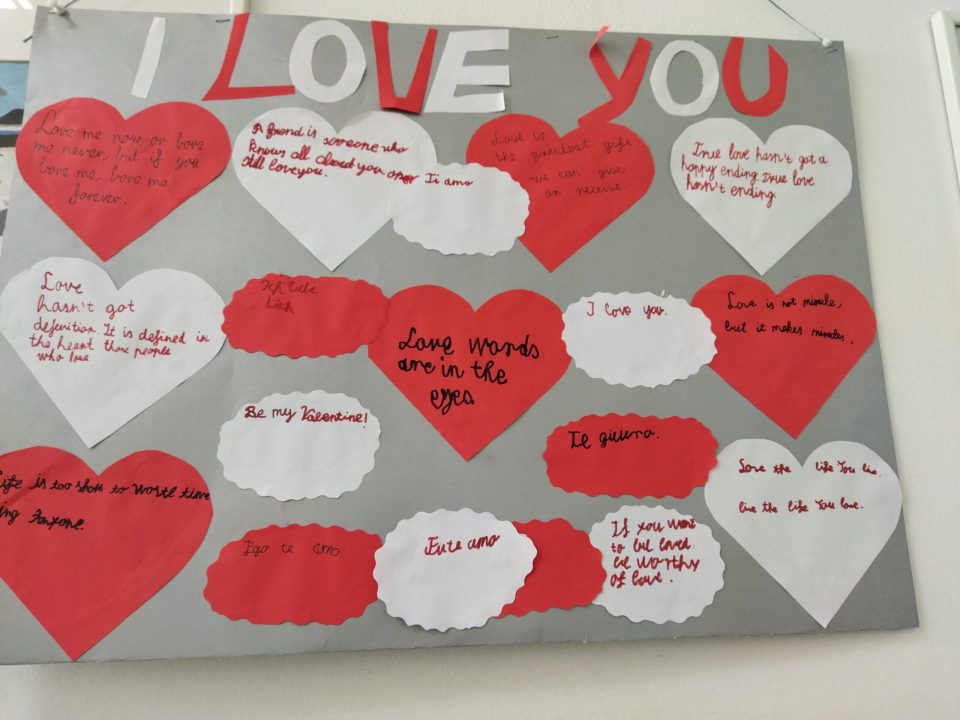 I LOVE YOU
Love me now or love
me never, but if you
love me, love me
forever.
A friend is someone who
knows all about you
still love you.
Ti amo
Love is
the greatest gift
we can give
or receive.
True love hasn't got a
happy ending. True love
hasn't ending.
Love
hasn't got
definition. It is defined in
the heart those people
who love
Ich liebe
dich
Love words
are in the
eyes.
I love you.
Love is not miracle,
but it makes miracles.
Be my Valentine!
Te quiero.
Life is too short to time
ing Anyone.
Love the life You live
live the life You love.
Ego te amo
Eu te amo
If you want
to be loved,
be worthy
of love.